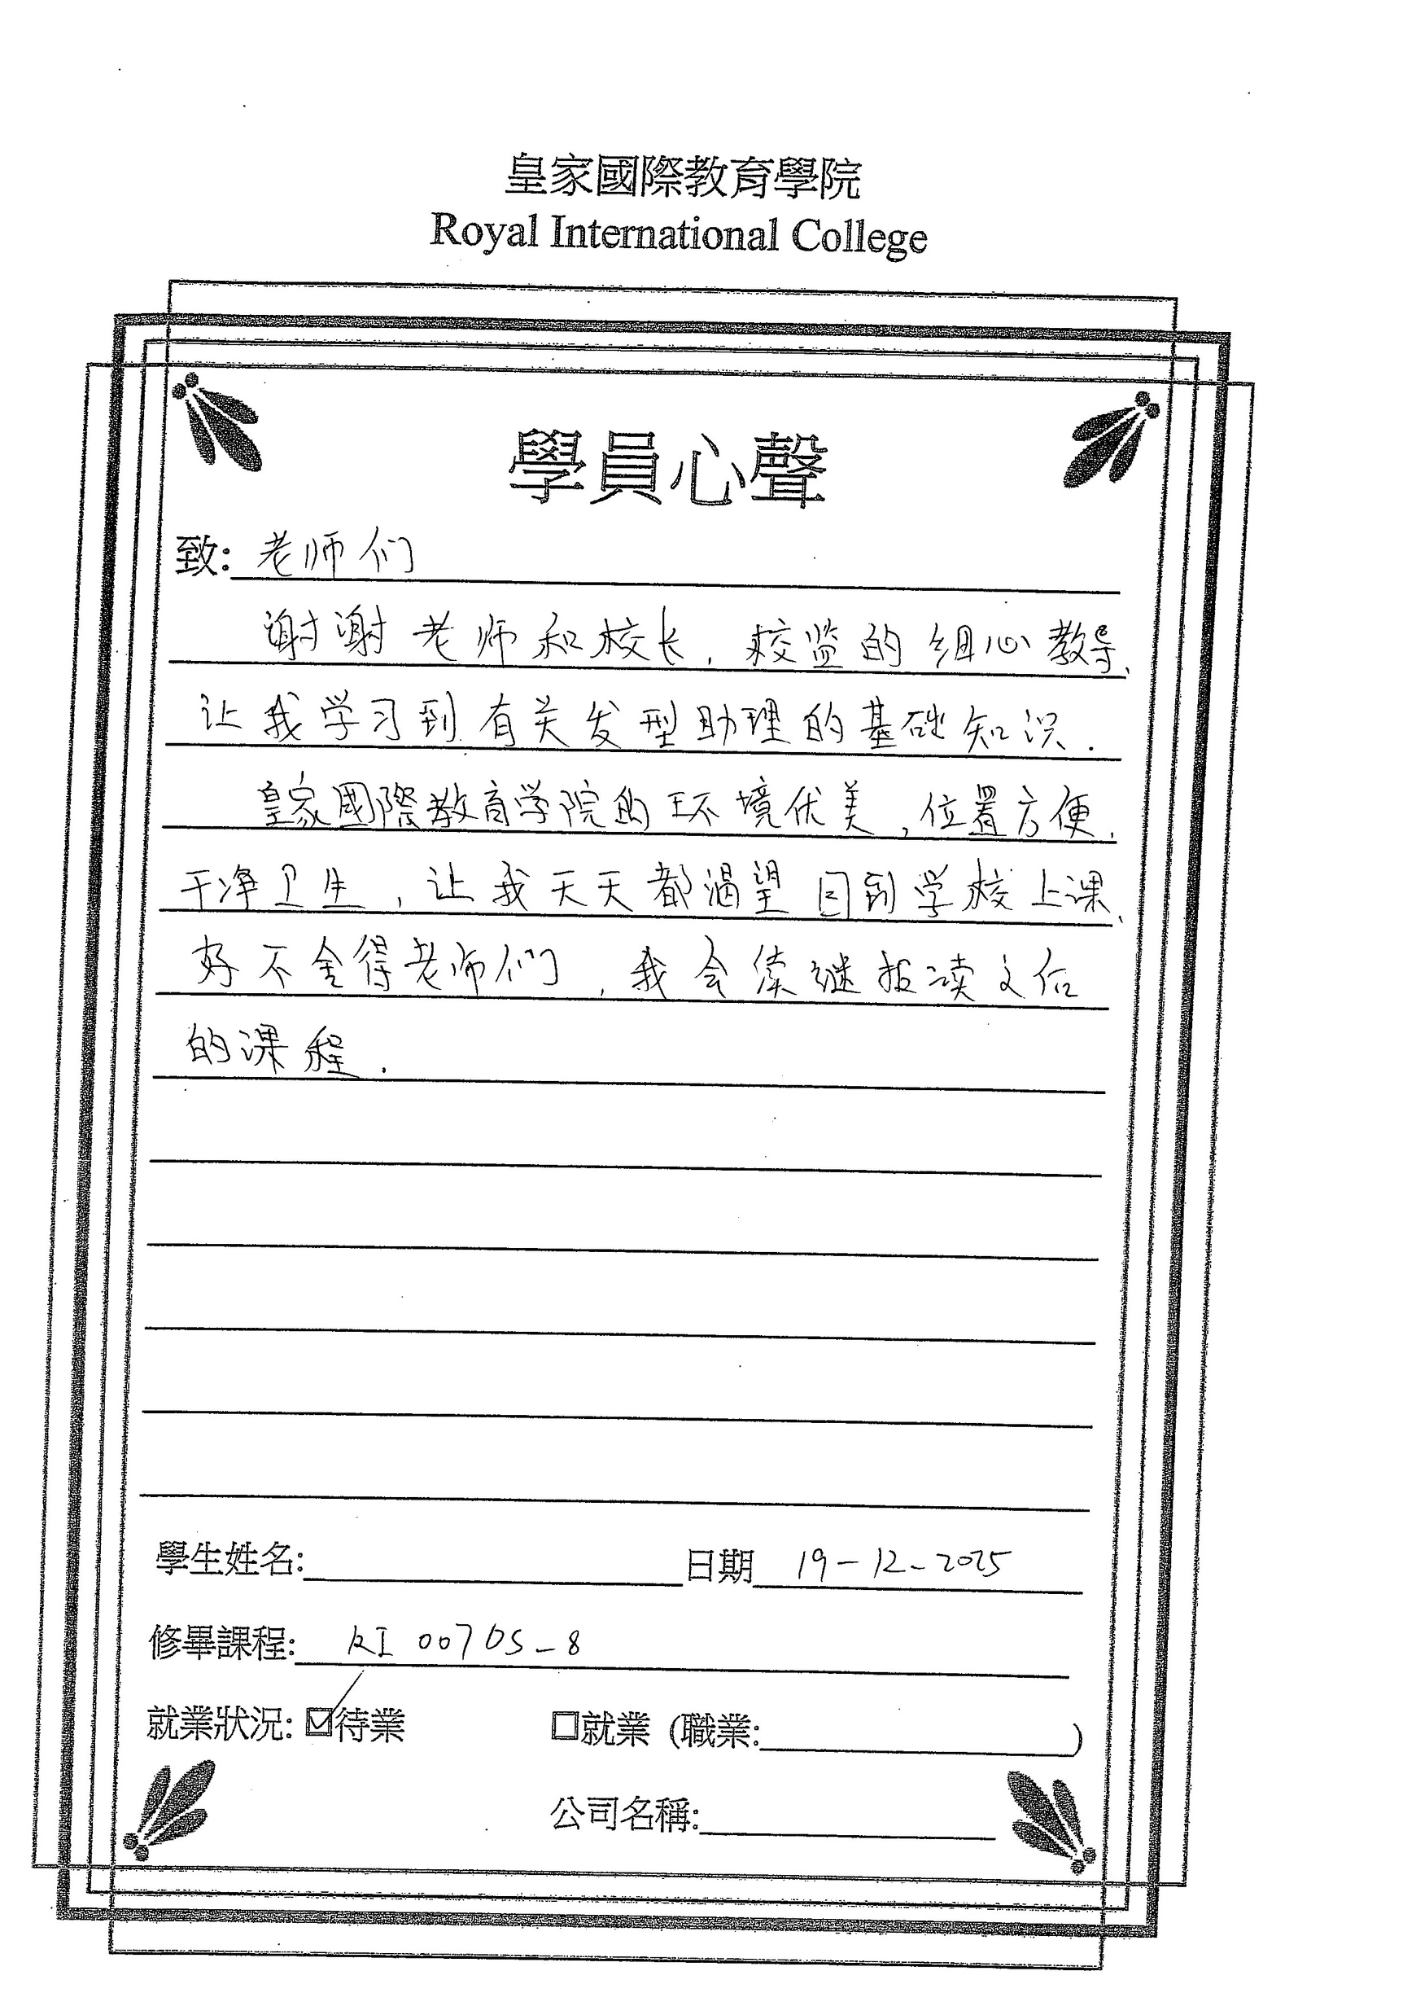 皇家國際教育學院
Royal International College
學員心聲
致: 老师们
谢谢老师和校长,校监的细心教导,
让我学习到有关发型助理的基础知识.
皇家國際教育学院的环境优美,位置方便,
干净卫生,让我天天都渴望回到学校上课,
好不舍得老师们,我会续继报读
的课程.
學生姓名: 日期 19-12-2025
修畢課程: RI007DS-8
就業狀況: ☑待業 □就業 (職業: )
公司名稱: